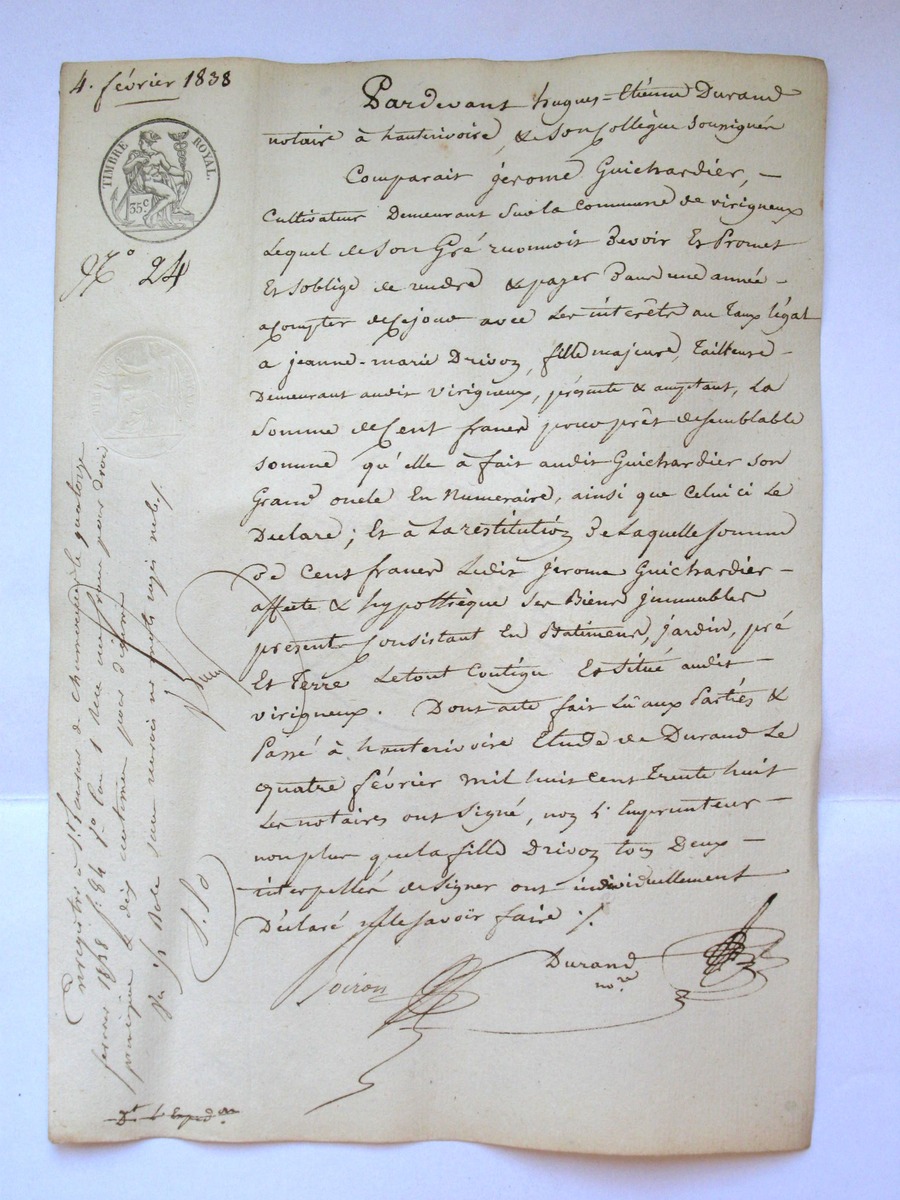 4. février 1838
TIMBRE ROYAL.
35 c
N.º 24
Pardevant hugues-Etiénne Durand
notaire à hauterivoire, & Son Collègue Soussignés
Comparait jérome Guichardier, —
Cultivateur Demeurant Sur la Commune de virigneux
Lequel de Son Gré reconnoit Devoir Et Promet
Et S'oblige de rendre & payer Dans une année —
a compter de Ce jour avec Les intérêts au Taux légal
a jeanne-marie Drivon, fille majeure, Tailleuse —
Demeurant audit virigneux, présente & acceptant, La
Somme de Cent francs pour prêt de semblable
Somme qu'elle à fait audit Guichardier son
Grand oncle En Numéraire, ainsi que Celui ci Le
Declare ; Et à La restitution De Laquelle Somme
De Cent francs Ledit jérome Guichardier —
affecte & hypothèque Ses Biens jmmeubles
présents Consistant En Batiments, jardin, pré
Et Terre Le tout Contigu Et Situé audit —
virigneux. Dont acte fait Lû aux Partiés &
Passé à hauterivoire Etude de Durand Le
quatre février mil huit cent Trente huit
Les notaires ont Signé, non L'Emprunteur —
non plus que la fille Drivon tous Deux —
interpellés de signer ont individuellement
Déclaré ne le Savoir faire ./.
Durand
nore
Soiron
Enregistré à St Laurent de chamousset le quatorze
fevrier 1838 fo 84 Ro Case 1 Reçu un franc pour droit
principal & dix centimes pour dixième
Dt & Expd on